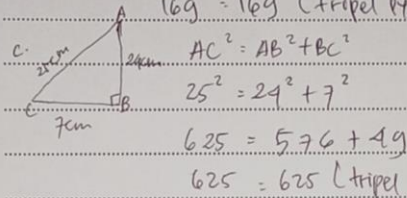 169 = 169 (tripel
A
c.
25cm
24cm
AC² = AB² + BC²
25² = 24² + 7²
C
B
7cm
625 = 576 + 49
625 = 625 (tripel